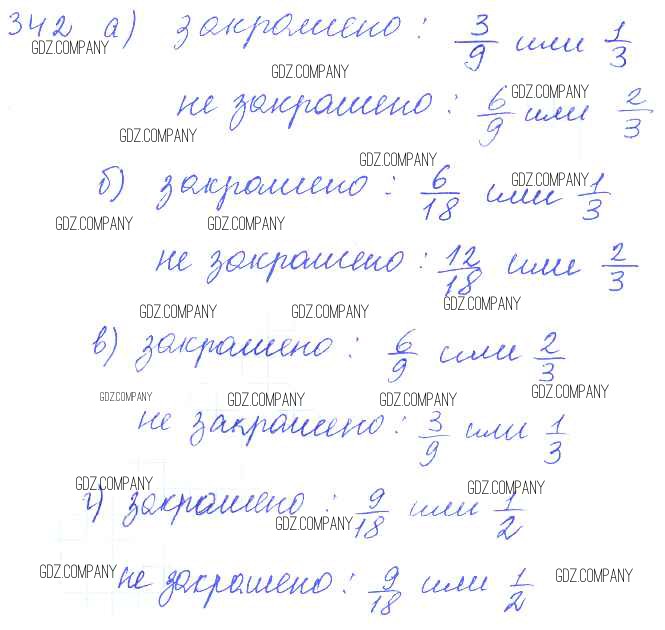 342 а) закрашено: 3/9 или 1/3
GDZ.COMPANY
GDZ.COMPANY
GDZ.COMPANY
не закрашено: 6/9 или 2/3
GDZ.COMPANY
GDZ.COMPANY
GDZ.COMPANY
б) закрашено: 6/18 или 1/3
GDZ.COMPANY GDZ.COMPANY
не закрашено: 12/18 или 2/3
GDZ.COMPANY GDZ.COMPANY GDZ.COMPANY
в) закрашено: 6/9 или 2/3
GDZ.COMPANY GDZ.COMPANY GDZ.COMPANY GDZ.COMPANY
не закрашено: 3/9 или 1/3
GDZ.COMPANY GDZ.COMPANY
г) закрашено: 9/18 или 1/2
GDZ.COMPANY
GDZ.COMPANY не закрашено: 9/18 или 1/2 GDZ.COMPANY